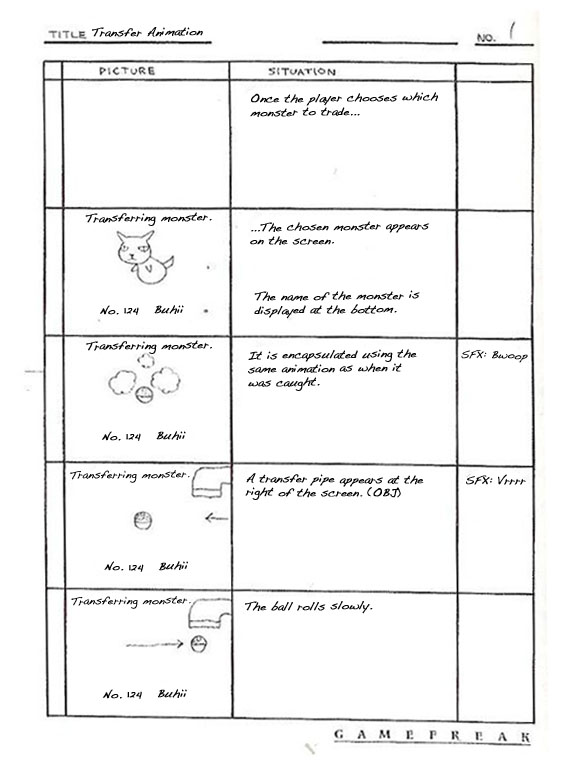 TITLE Transfer Animation
NO. 1
PICTURE
SITUATION
Once the player chooses which
monster to trade...
Transferring monster.
No. 124 Buhii
...The chosen monster appears
on the screen.
The name of the monster is
displayed at the bottom.
Transferring monster.
No. 124 Buhii
It is encapsulated using the
same animation as when it
was caught.
SFX: Bwoop
Transferring monster.
No. 124 Buhii
A transfer pipe appears at the
right of the screen. (OBJ)
SFX: Vrrrr
Transferring monster.
No. 124 Buhii
The ball rolls slowly.
GAMEFREAK